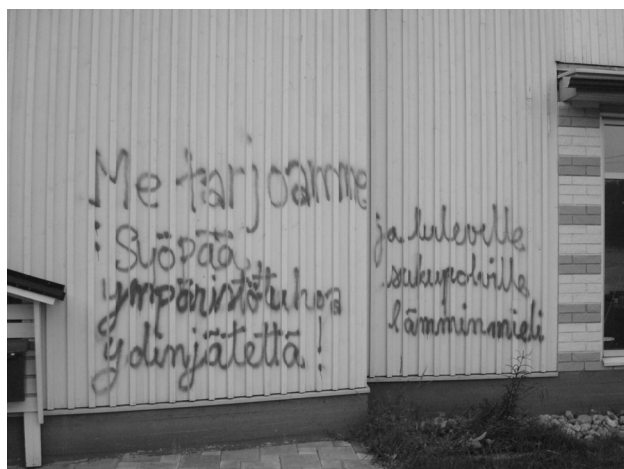 Me tarjoamme
: Syöpää,
ympäristötuhoa
ydinjätettä!
ja tuleville
sukupolville
lämmin mieli